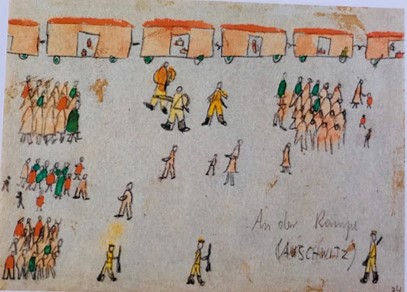 An der Rampe
(AUSCHWITZ)